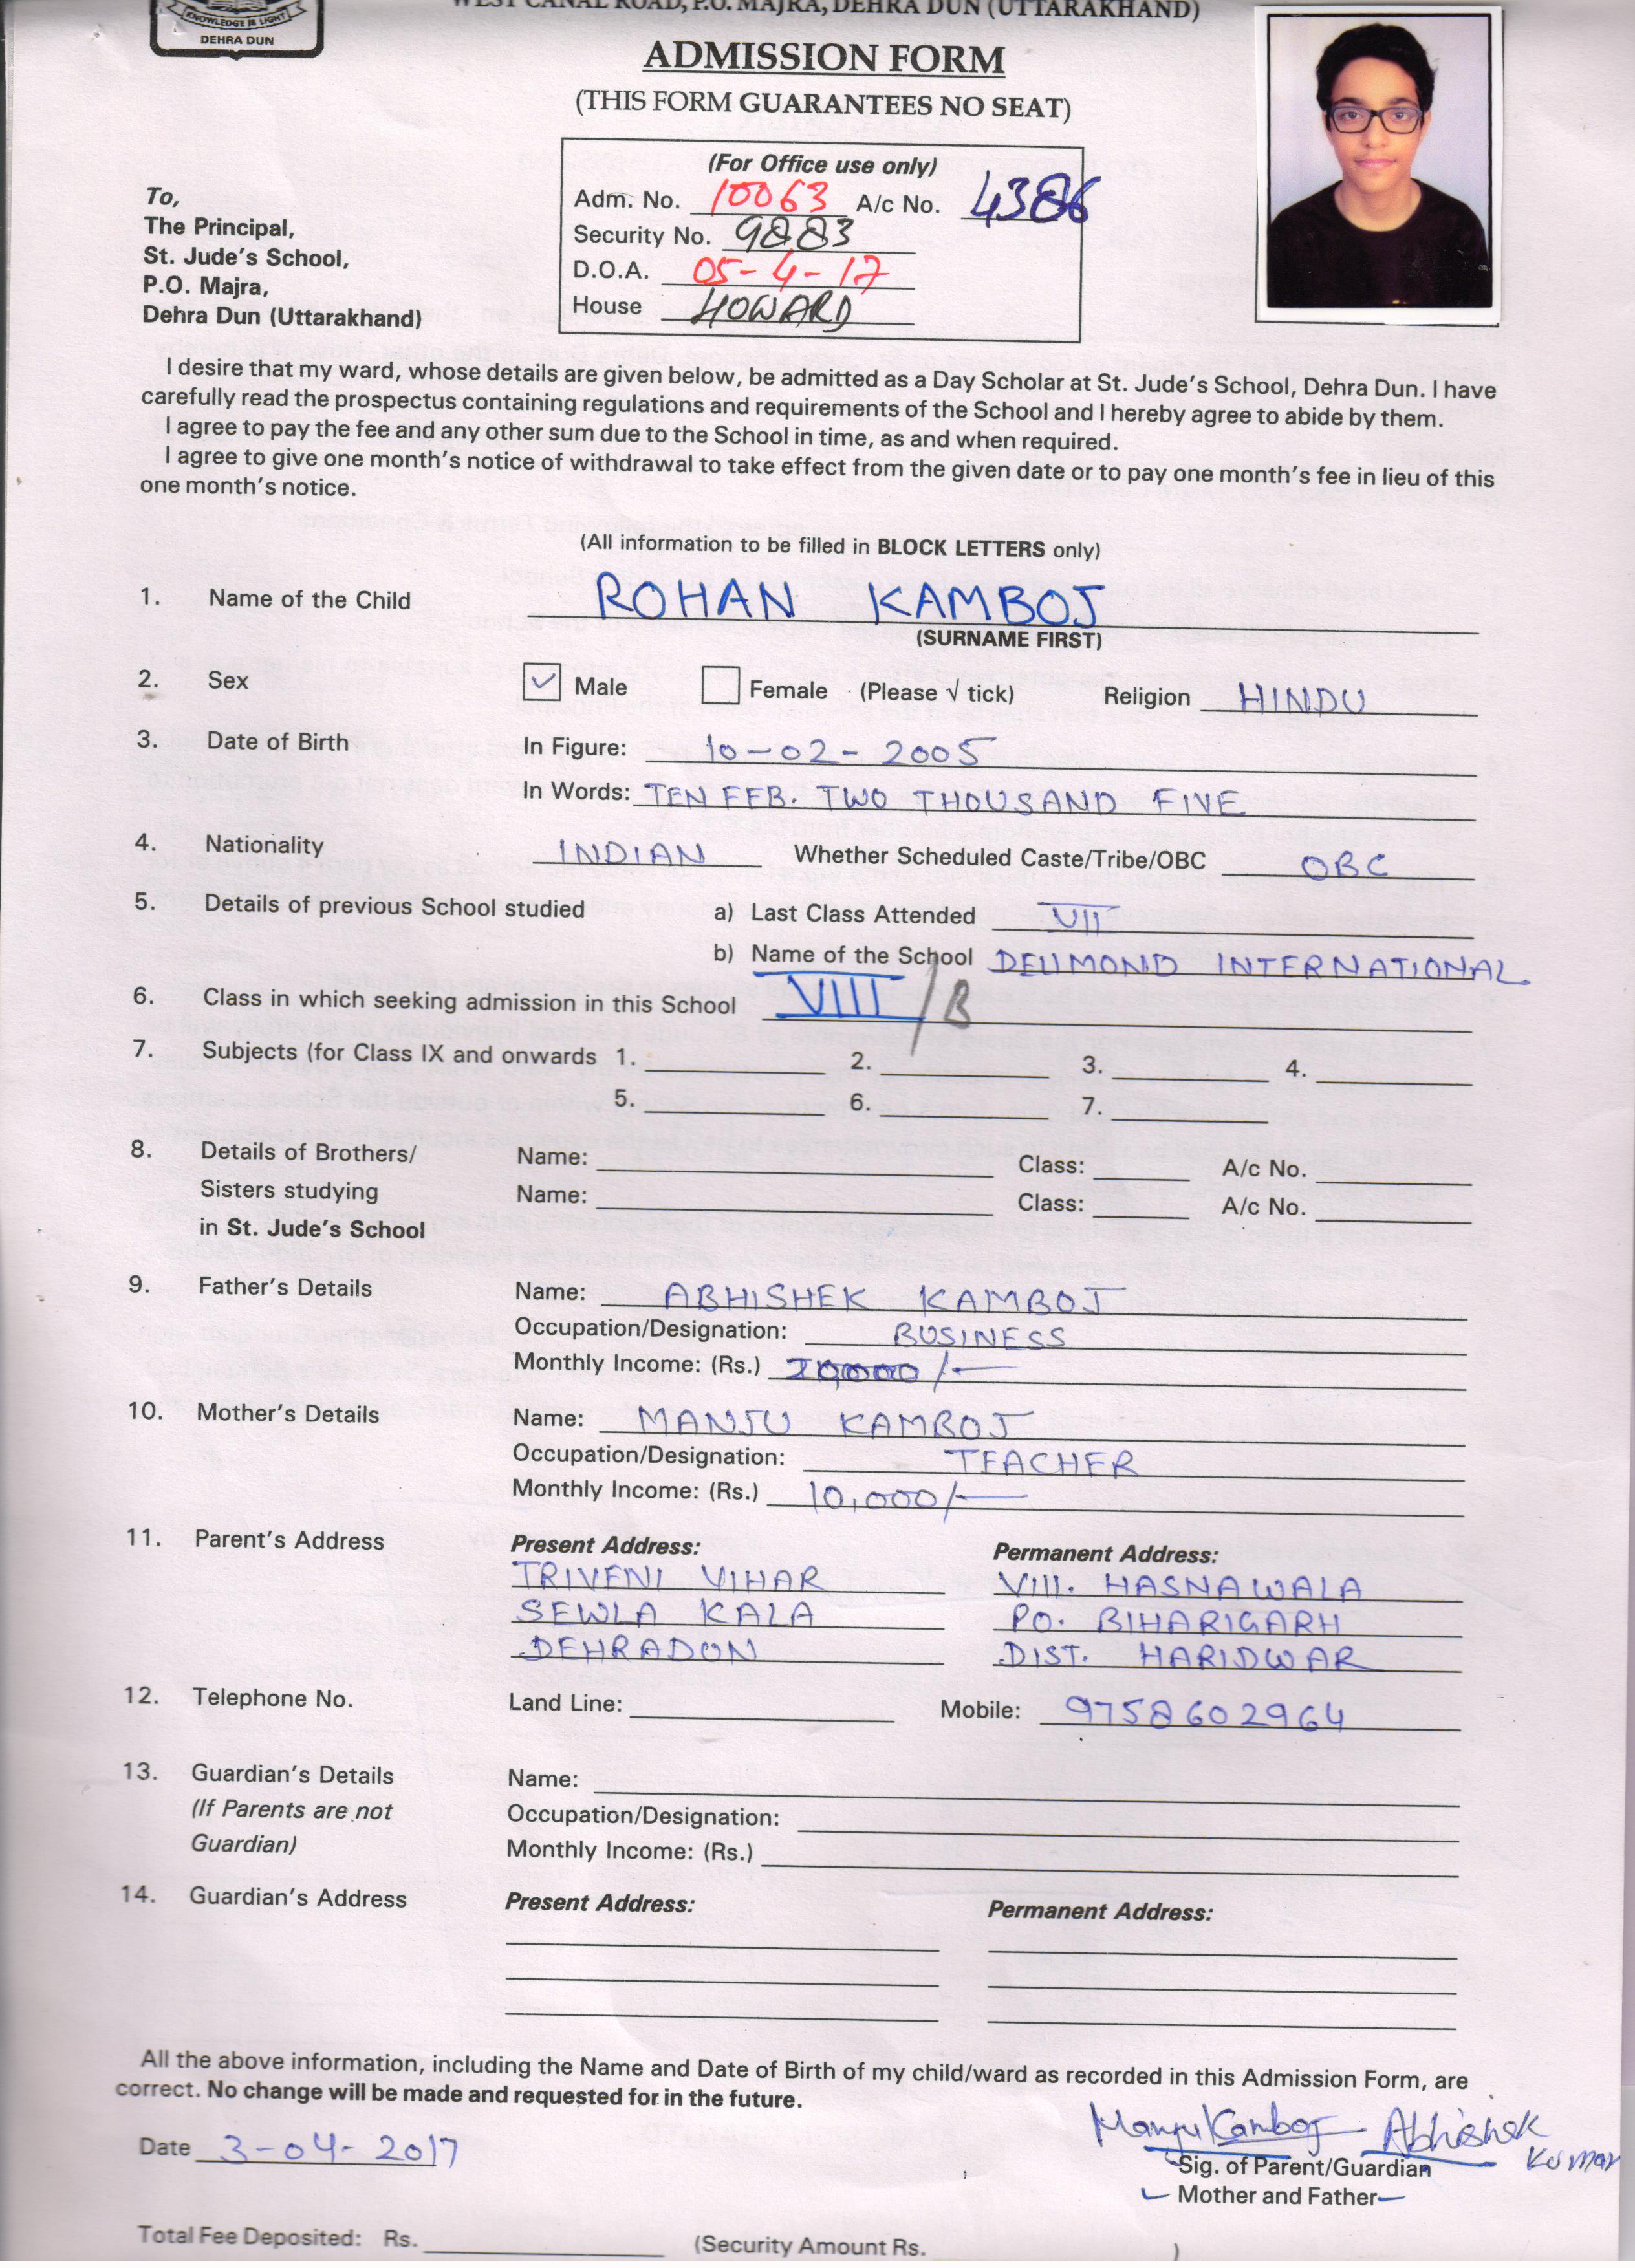 KNOWLEDGE IS LIGHT
DEHRA DUN
WEST CANAL ROAD, P.O. MAJRA, DEHRA DUN (UTTARAKHAND)
ADMISSION FORM
(THIS FORM GUARANTEES NO SEAT)
(For Office use only)
Adm. No. 10063 A/c No. 4386
Security No. 9883
D.O.A. 05-4-17
House HOWARD
To,
The Principal,
St. Jude's School,
P.O. Majra,
Dehra Dun (Uttarakhand)
I desire that my ward, whose details are given below, be admitted as a Day Scholar at St. Jude's School, Dehra Dun. I have
carefully read the prospectus containing regulations and requirements of the School and I hereby agree to abide by them.
I agree to pay the fee and any other sum due to the School in time, as and when required.
I agree to give one month's notice of withdrawal to take effect from the given date or to pay one month's fee in lieu of this
one month's notice.
(All information to be filled in BLOCK LETTERS only)
1. Name of the Child ROHAN KAMBOJ
(SURNAME FIRST)
2. Sex ✓ Male Female (Please √ tick) Religion HINDU
3. Date of Birth In Figure: 10-02-2005
In Words: TEN FEB. TWO THOUSAND FIVE
4. Nationality INDIAN Whether Scheduled Caste/Tribe/OBC OBC
5. Details of previous School studied a) Last Class Attended VII
b) Name of the School INTERNATIONAL
6. Class in which seeking admission in this School VIII/B
7. Subjects (for Class IX and onwards 1. 2. 3. 4.
5. 6. 7.
8. Details of Brothers/ Name: Class: A/c No.
Sisters studying Name: Class: A/c No.
in St. Jude's School
9. Father's Details Name: ABHISHEK KAMBOJ
Occupation/Designation: BUSINESS
Monthly Income: (Rs.) /-
10. Mother's Details Name: MANJU KAMBOJ
Occupation/Designation: TEACHER
Monthly Income: (Rs.) 10,000/-
11. Parent's Address Present Address: Permanent Address:
TRIVENI VIHAR VIII. HASNAWALA
SEWLA KALA PO. BIHARIGARH
DEHRADUN DIST. HARIDWAR
12. Telephone No. Land Line: Mobile: 9758602964
13. Guardian's Details Name:
(If Parents are not Occupation/Designation:
Guardian) Monthly Income: (Rs.)
14. Guardian's Address Present Address: Permanent Address:
All the above information, including the Name and Date of Birth of my child/ward as recorded in this Admission Form, are
correct. No change will be made and requested for in the future.
Manju Kamboj Abhishek Kumar
Date 3-04-2017
Sig. of Parent/Guardian
Mother and Father
Total Fee Deposited: Rs. (Security Amount Rs. )